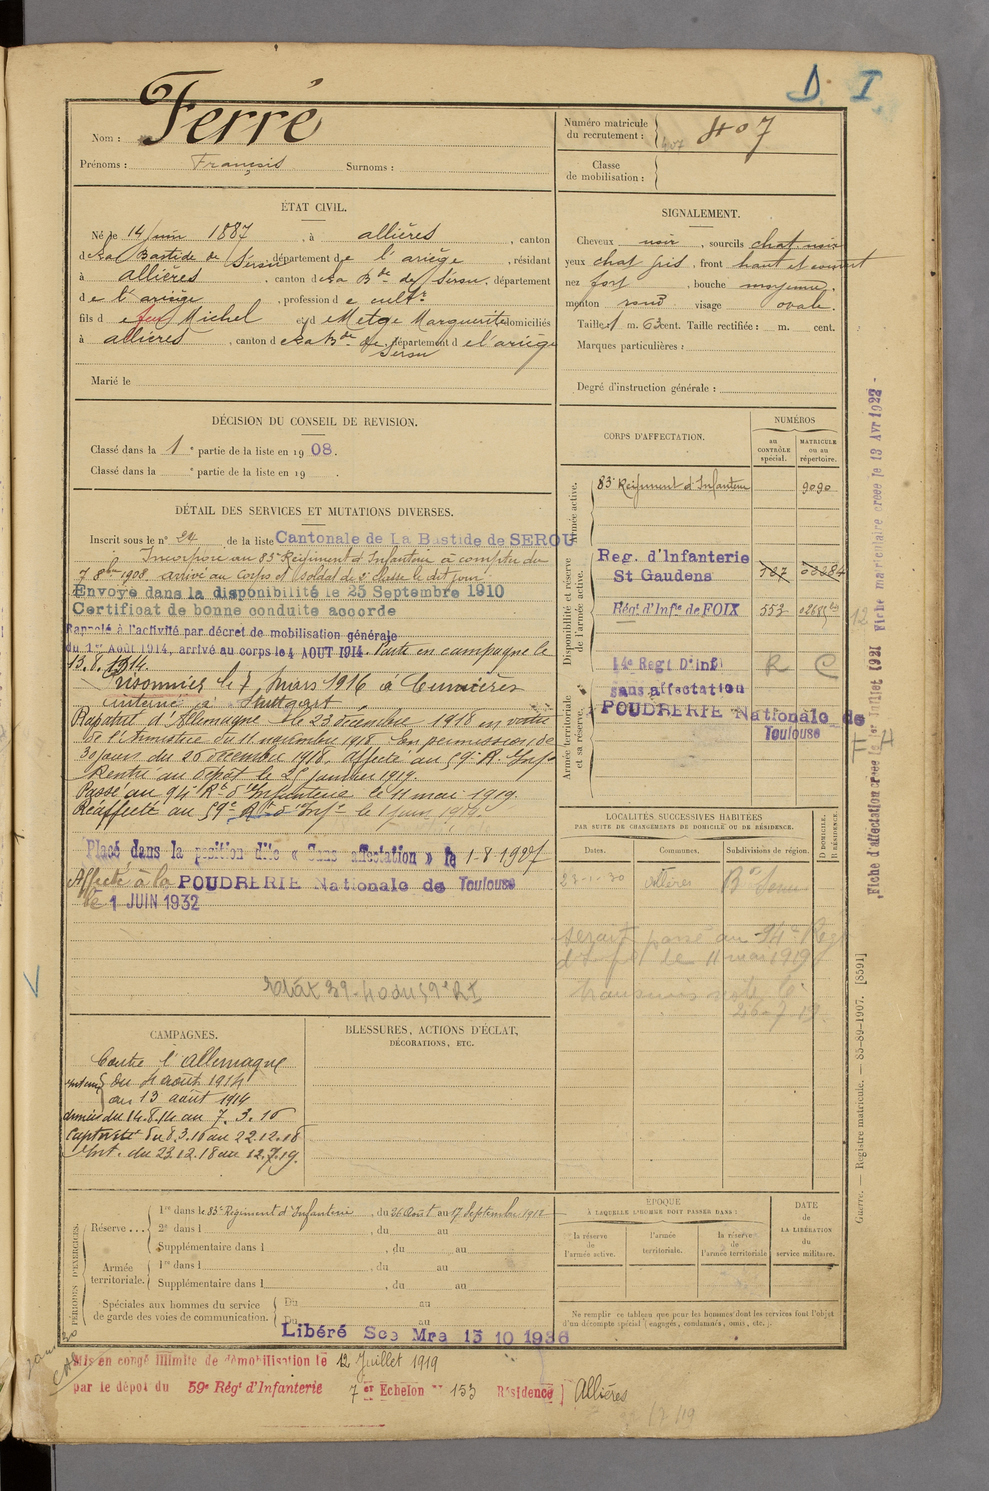 D. I
Ferré
Nom :
Prénoms : François Surnoms :
Numéro matricule
du recrutement : 407
407
Classe
de mobilisation :
ÉTAT CIVIL.
Né le 14 juin 1887, à allières, canton
de La Bastide de Sérou, département de l'ariège, résidant
à allières, canton de La Bde de Sérou, département
de l'ariège, profession de cultr
fils de feu Michel et de Metge Marguerite domiciliés
à allières, canton de La Bde de Sérou, département de l'ariège
Marié le
SIGNALEMENT.
Cheveux noir, sourcils chat. noir
yeux chat gris, front haut et couvert
nez fort, bouche moyenne.
menton rond visage ovale.
Taille 1 m. 63 cent. Taille rectifiée : m. cent.
Marques particulières :
Degré d'instruction générale :
DÉCISION DU CONSEIL DE REVISION.
Classé dans la 1e partie de la liste en 1908.
Classé dans la e partie de la liste en 19
DÉTAIL DES SERVICES ET MUTATIONS DIVERSES.
Inscrit sous le n° 24 de la liste Cantonale de La Bastide de SEROU
Incorporé au 83e Régiment d'Infanterie à compter du
7 8bre 1908. arrivé au Corps et soldat de 2e classe le dit jour.
Envoyé dans la disponibilité le 25 Septembre 1910
Certificat de bonne conduite accordé
Rappelé à l'activité par décret de mobilisation générale
du 1er Août 1914, arrivé au corps le 4 AOUT 1914. Parti en campagne le
13.8.1914.
Prisonnier le 7 mars 1916 à Cumières
interné à Stuttgart
Rapatrié d'Allemagne le 23 décembre 1918 en vertu
de l'Armistice du 11 novembre 1918. En permission de
30 jours du 26 décembre 1918. affecté au 59e R. Infie
Rentré au Dépôt le 25 janvier 1919.
Passé au 94e Rt d'Infanterie le 11 mai 1919.
Réaffecté au 59e Rt d'Infie le 1 juin 1919.
Placé dans la position dite « Sans affectation » le 1-8-1927
Affecté à la POUDRERIE Nationale de Toulouse
le 1 JUIN 1932
39-40 du 59e RI
CORPS D'AFFECTATION.
NUMÉROS
au
CONTRÔLE
spécial.
MATRICULE
ou au
répertoire.
Armée active.
83e Régiment d'Infanterie 9090
Disponibilité et réserve
de l'armée active.
Reg. d'Infanterie
St Gaudens
Régt d'Infie de FOIX 553
Armée territoriale
et sa réserve.
14e Regt D'Inf R C
sans affectation
POUDRERIE Nationale de
Toulouse
LOCALITÉS SUCCESSIVES HABITÉES
PAR SUITE DE CHANGEMENTS DE DOMICILE OU DE RÉSIDENCE.
Dates. Communes. Subdivisions de région.
D DOMICILE.
R RÉSIDENCE.
Allières Bde Sérou
serait passé au 94e Regt
d'Infie le 11 mai 1919
26-7-19.
CAMPAGNES.
Contre l'allemagne
Intérieur du 4 août 1914
au 13 août 1914
armées du 14.8.14 au 7.3.16
Captivité du 8.3.16 au 22.12.18
Int. du 23.12.18 au 12.7.19.
BLESSURES, ACTIONS D'ÉCLAT,
DÉCORATIONS, ETC.
PÉRIODES D'EXERCICES.
Réserve...
1re dans le 83e Régiment d'Infanterie, du 26 Août au 17 Septembre 1912
2e dans l , du au
Supplémentaire dans l , du au
Armée
territoriale.
1re dans l , du au
Supplémentaire dans l , du au
Spéciales aux hommes du service
de garde des voies de communication.
Du au
Du au
ÉPOQUE
À LAQUELLE L'HOMME DOIT PASSER DANS :
la réserve
de
l'armée active.
l'armée
territoriale.
la réserve
de
l'armée territoriale
DATE
de
LA LIBÉRATION
du
service militaire.
Ne remplir ce tableau que pour les hommes dont les services font l'objet
d'un décompte spécial (engagés, condamnés, omis, etc.).
Libéré Sce Mre 15 10 1936
Mis en congé illimité de démobilisation le 12 Juillet 1919
par le dépôt du 59e Régt d'Infanterie 7er Echelon n° 153 Résidence Allières
Fiche d'affectation créée le 1er Juillet 1921 Fiche matriculaire créée le 13 Avr 1922
Guerre. — Registre matricule. — 83-89-1907. [8391]